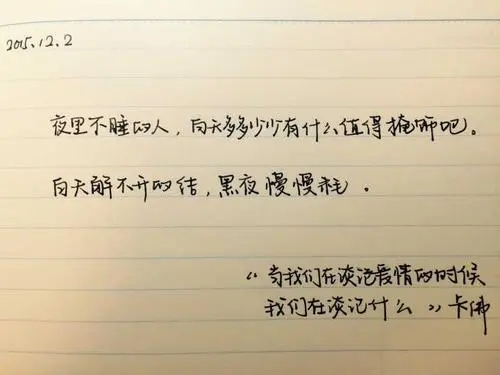 2015.12.2
夜里不睡的人，白天多多少少有什么值得掩饰吧。
白天解不开的结，黑夜慢慢耗。
“当我们在谈论爱情的时候
我们在谈论什么”卡佛